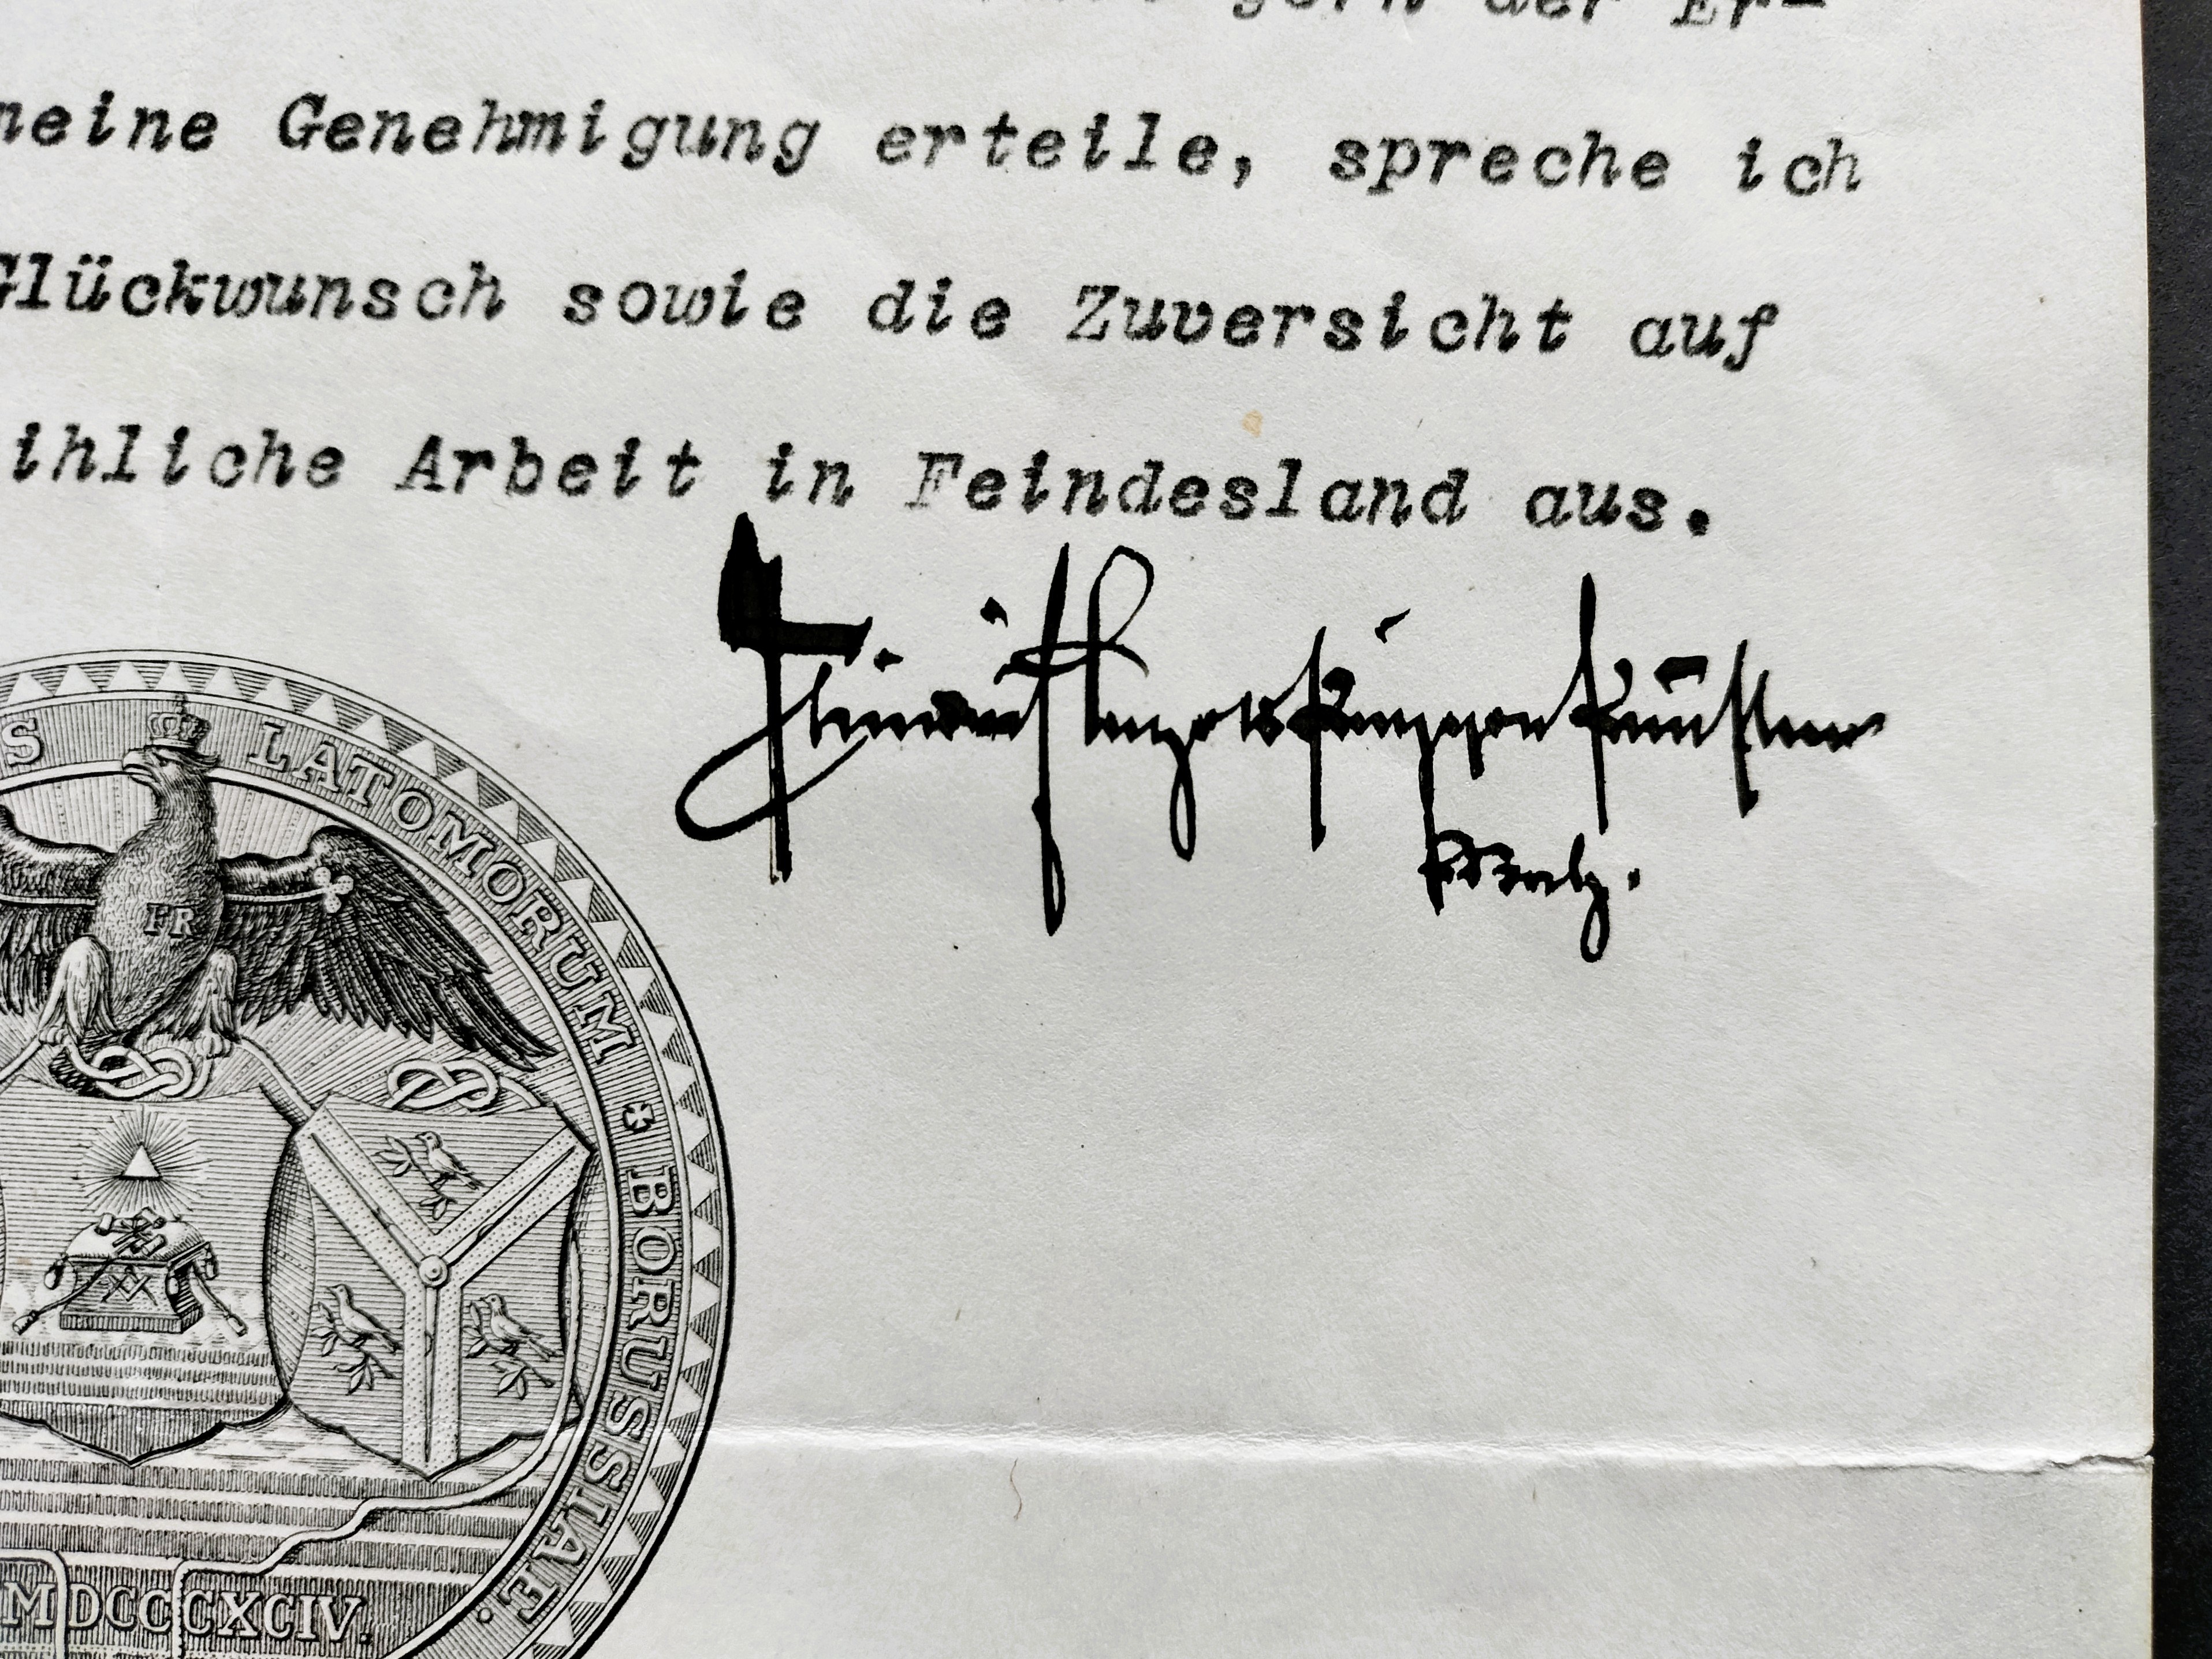 gern der Er-
meine Genehmigung erteile, spreche ich
Glückwunsch sowie die Zuversicht auf
ihliche Arbeit in Feindesland aus.
S LATOMORUM ✠ BORUSSIAE.
FR
MDCCCXCIV.